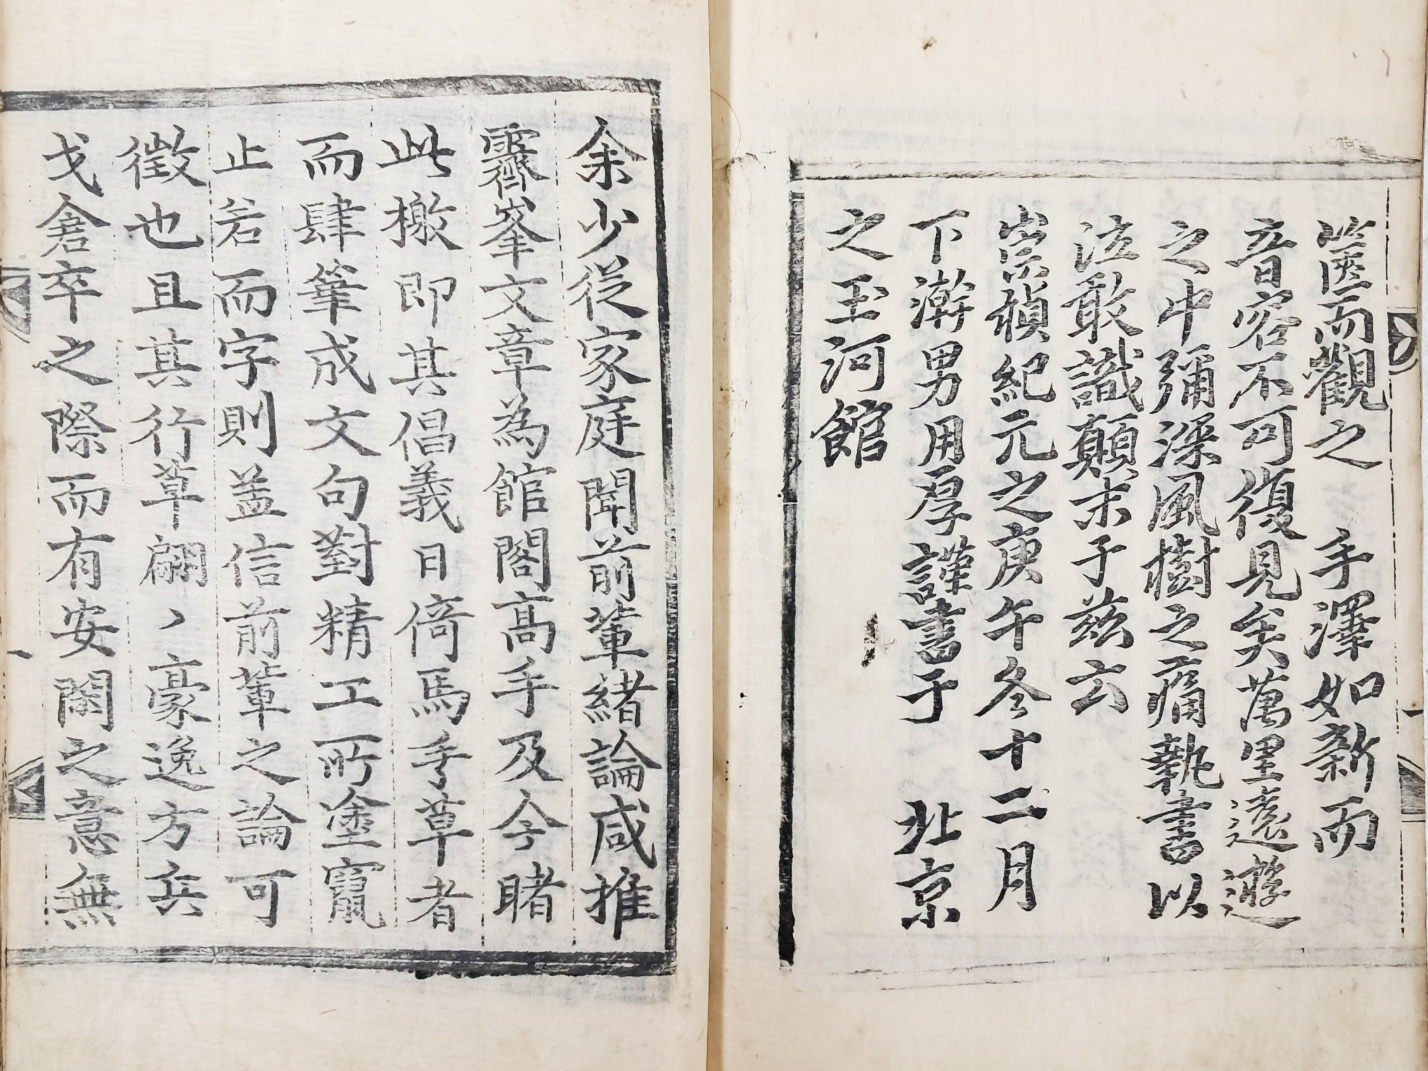 篋而觀之 手澤如新而
音容不可復見矣萬里遠遊
之中彌深風樹之痛執書以
泣敢識顛末于玆云
崇禎紀元之庚午冬十二月
下澣男用厚謹書于 北京
之玉河館
余少從家庭聞前輩緖論咸推
霽峯文章為館閣高手及今睹
此檄即其倡義日倚馬手草者
而肆筆成文句對精工所塗竄
止若而字則盖信前輩之論可
徵也且其行草翩〻豪逸方兵
戈倉卒之際而有安閑之意無